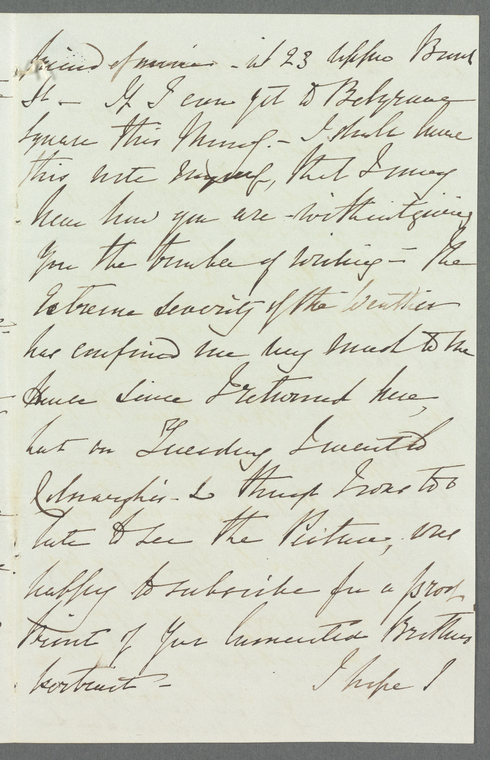 friend of mine - at 23 Upper Brook
St - If I can get to Belgrave
Square this Morng. - I shall leave
this note myself, that I may
hear how you are - without giving
you the trouble of writing - The
extreme severity of the weather
has confined me very much to the
House since I returned here,
but on Tuesday I went to
& though I was too
late to see the Picture, was
happy to subscribe for a proof
Print of your lamented Brothers
portrait - I hope I